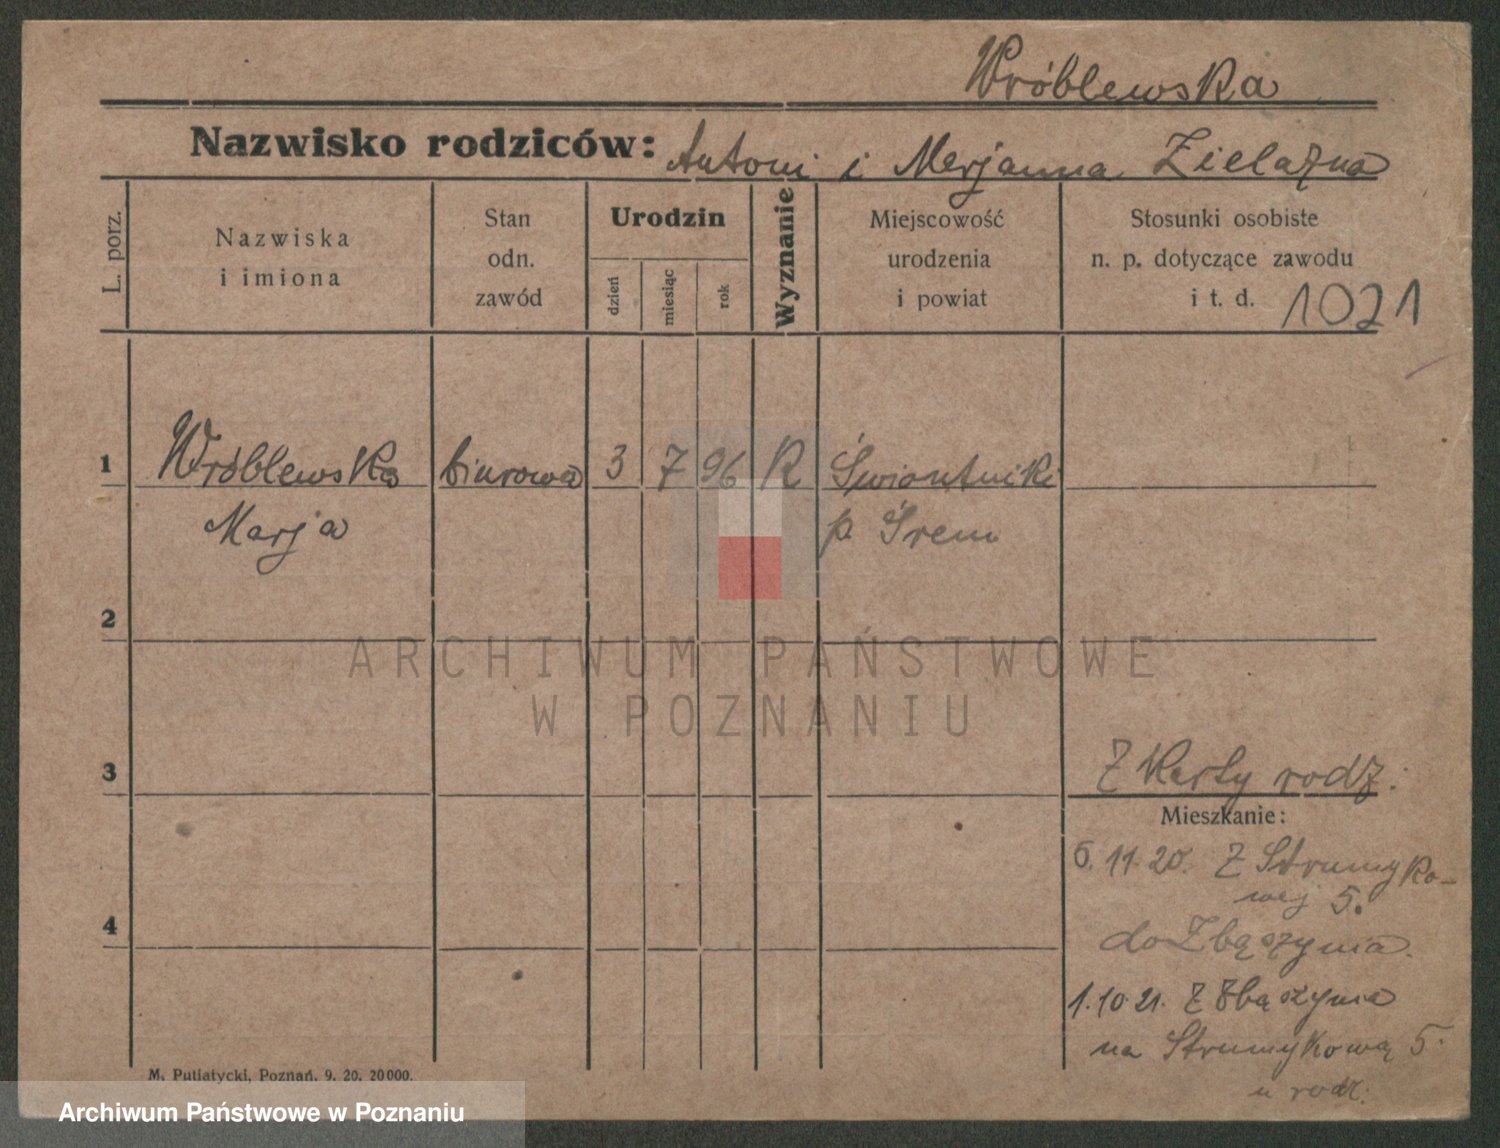 Wróblewska
Nazwisko rodziców: Antoni i Marjanna Zielazna
L. porz.
Nazwiska
i imiona
Stan
odn.
zawód
Urodzin
dzień
miesiąc
rok
Wyznanie
Miejscowość
urodzenia
i powiat
Stosunki osobiste
n. p. dotyczące zawodu
i t. d. 1021
1 Wróblewska biurowa 3 7 96 R Świontniki
Marja p. Śrem
2
3 Z karty rodz.
Mieszkanie:
6.11.20. Z Strumyko-
wej 5.
do Zbąszynia.
4
1.10.21. Z Zbąszynia
na Strumykową 5.
u rodz.
M. Putiatycki, Poznań. 9. 20. 20000.
ARCHIWUM PAŃSTWOWE
W POZNANIU
Archiwum Państwowe w Poznaniu